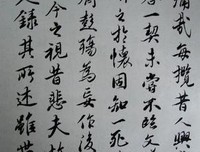 痛哉每攬昔人興
一契未嘗不臨文
之於懷固知一死
彭殤為妄作後
今之視昔悲夫故
人錄其所述雖世